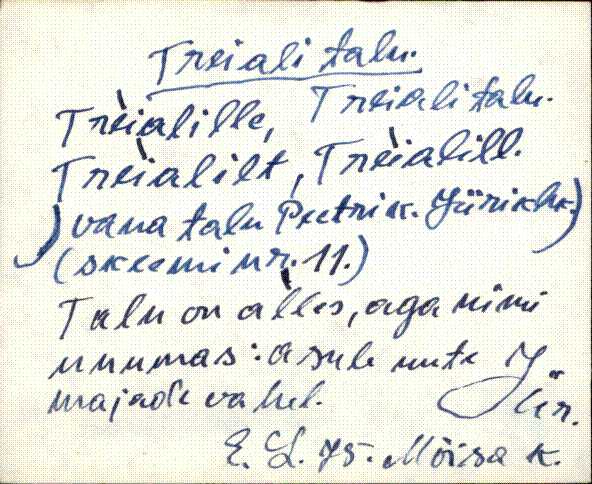 Treiali talu.
Trèialille, Treiali talu.
Trèialilt, Trèialill.
) vana talu Peetri k. Jüri khk.)
(skeemi nr. 11.)
Talu on àlles, aga nimi
unumas: asub uute
majade vahel. Jür.
E. L. 75. Mõisa k.